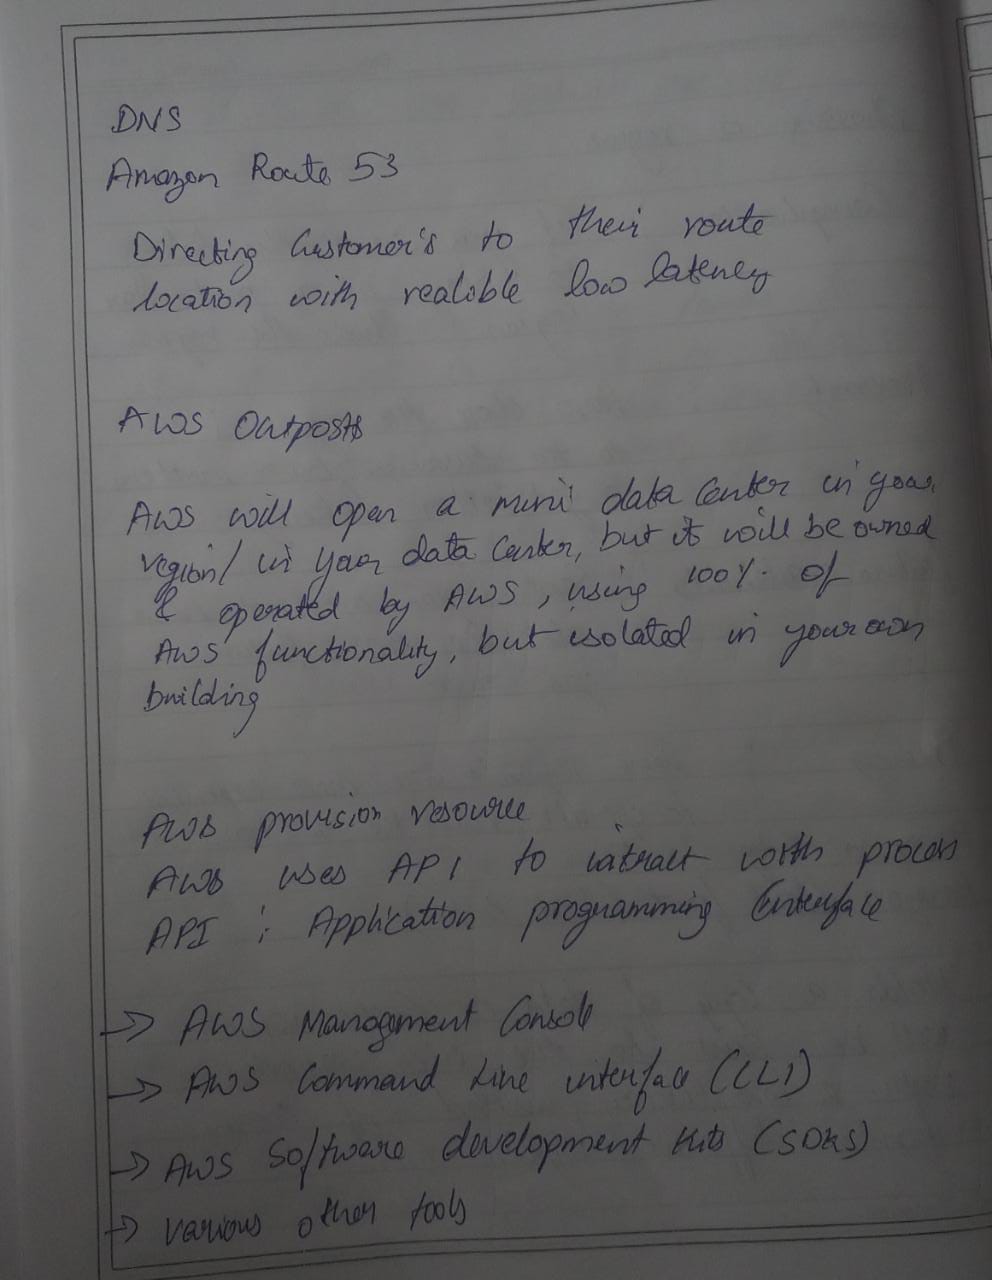 DNS
Amazon Route 53
Directing Customer's to their route
location with realible low latency
AWS Outposts
AWS will open a mini data center in your
region/ in your data center, but it will be owned
& operated by AWS, using 100% of
AWS functionality, but isolated in your own
building
AWS provision resource
AWS uses API to intract with process
API : Application programming Interface
→ AWS Management Console
→ AWS Command Line interface (CLI)
→ AWS Software development Kits (SDKS)
→ various other tools